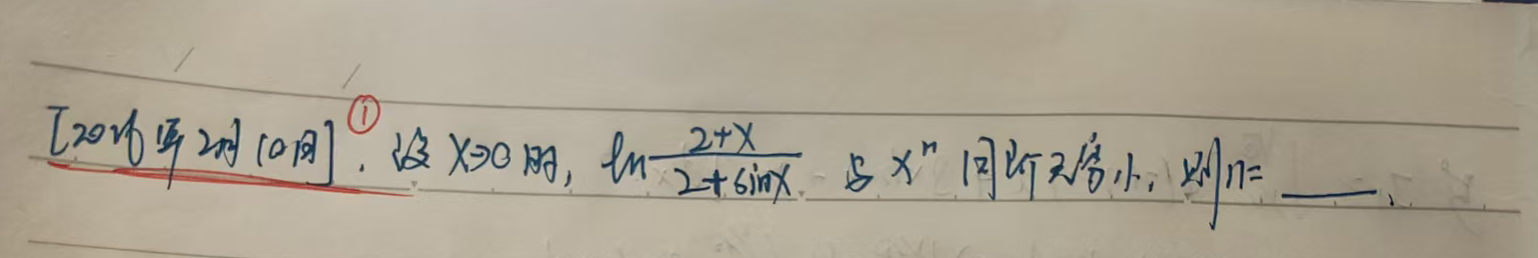 [2026年2月10日]①. 设x→0时, ln (2+x)/(2+sinx) 与 x^n 同阶无穷小, 则n= ____.